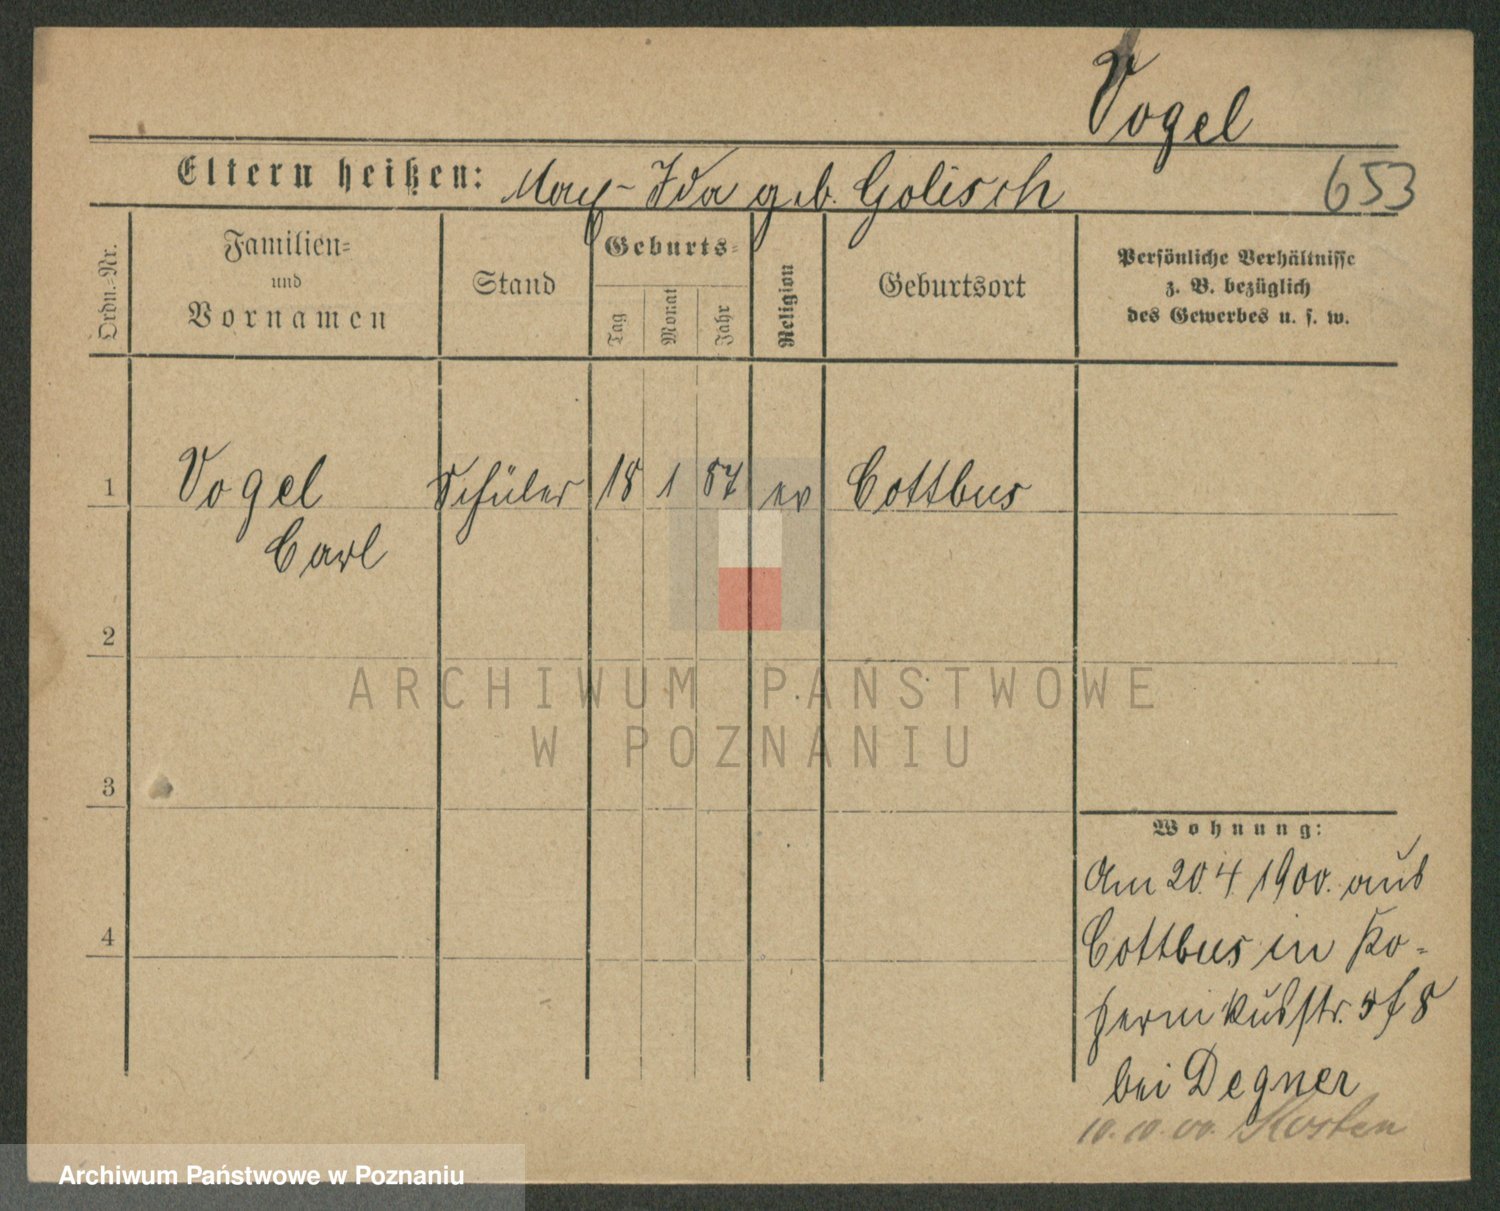 Vogel
Eltern heißen: Max - Ida geb. Golisch
653
Ordn.-Nr.
Familien-
und
Vornamen
Stand
Geburts-
Tag
Monat
Jahr
Religion
Geburtsort
Persönliche Verhältnisse
z. B. bezüglich
des Gewerbes u. s. w.
1 Vogel Schüler 18 1 87 ev Cottbus
Carl
2
3
4
Wohnung:
Am 20.4.1900. aus
Cottbus in Ko-
pernikusstr.
bei Degner
10.10.00. Kosten
ARCHIWUM PAŃSTWOWE
W POZNANIU
Archiwum Państwowe w Poznaniu